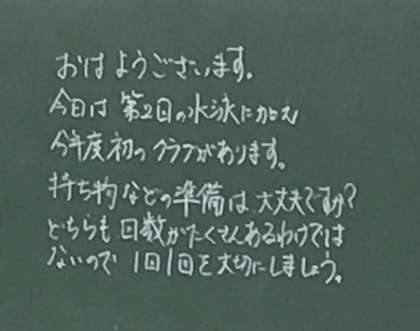 おはようございます。
今日は第2回の水泳に加え
今年度初のクラブがあります。
持ち物などの準備は大丈夫ですか?
どちらも回数がたくさんあるわけでは
ないので1回1回を大切にしましょう。